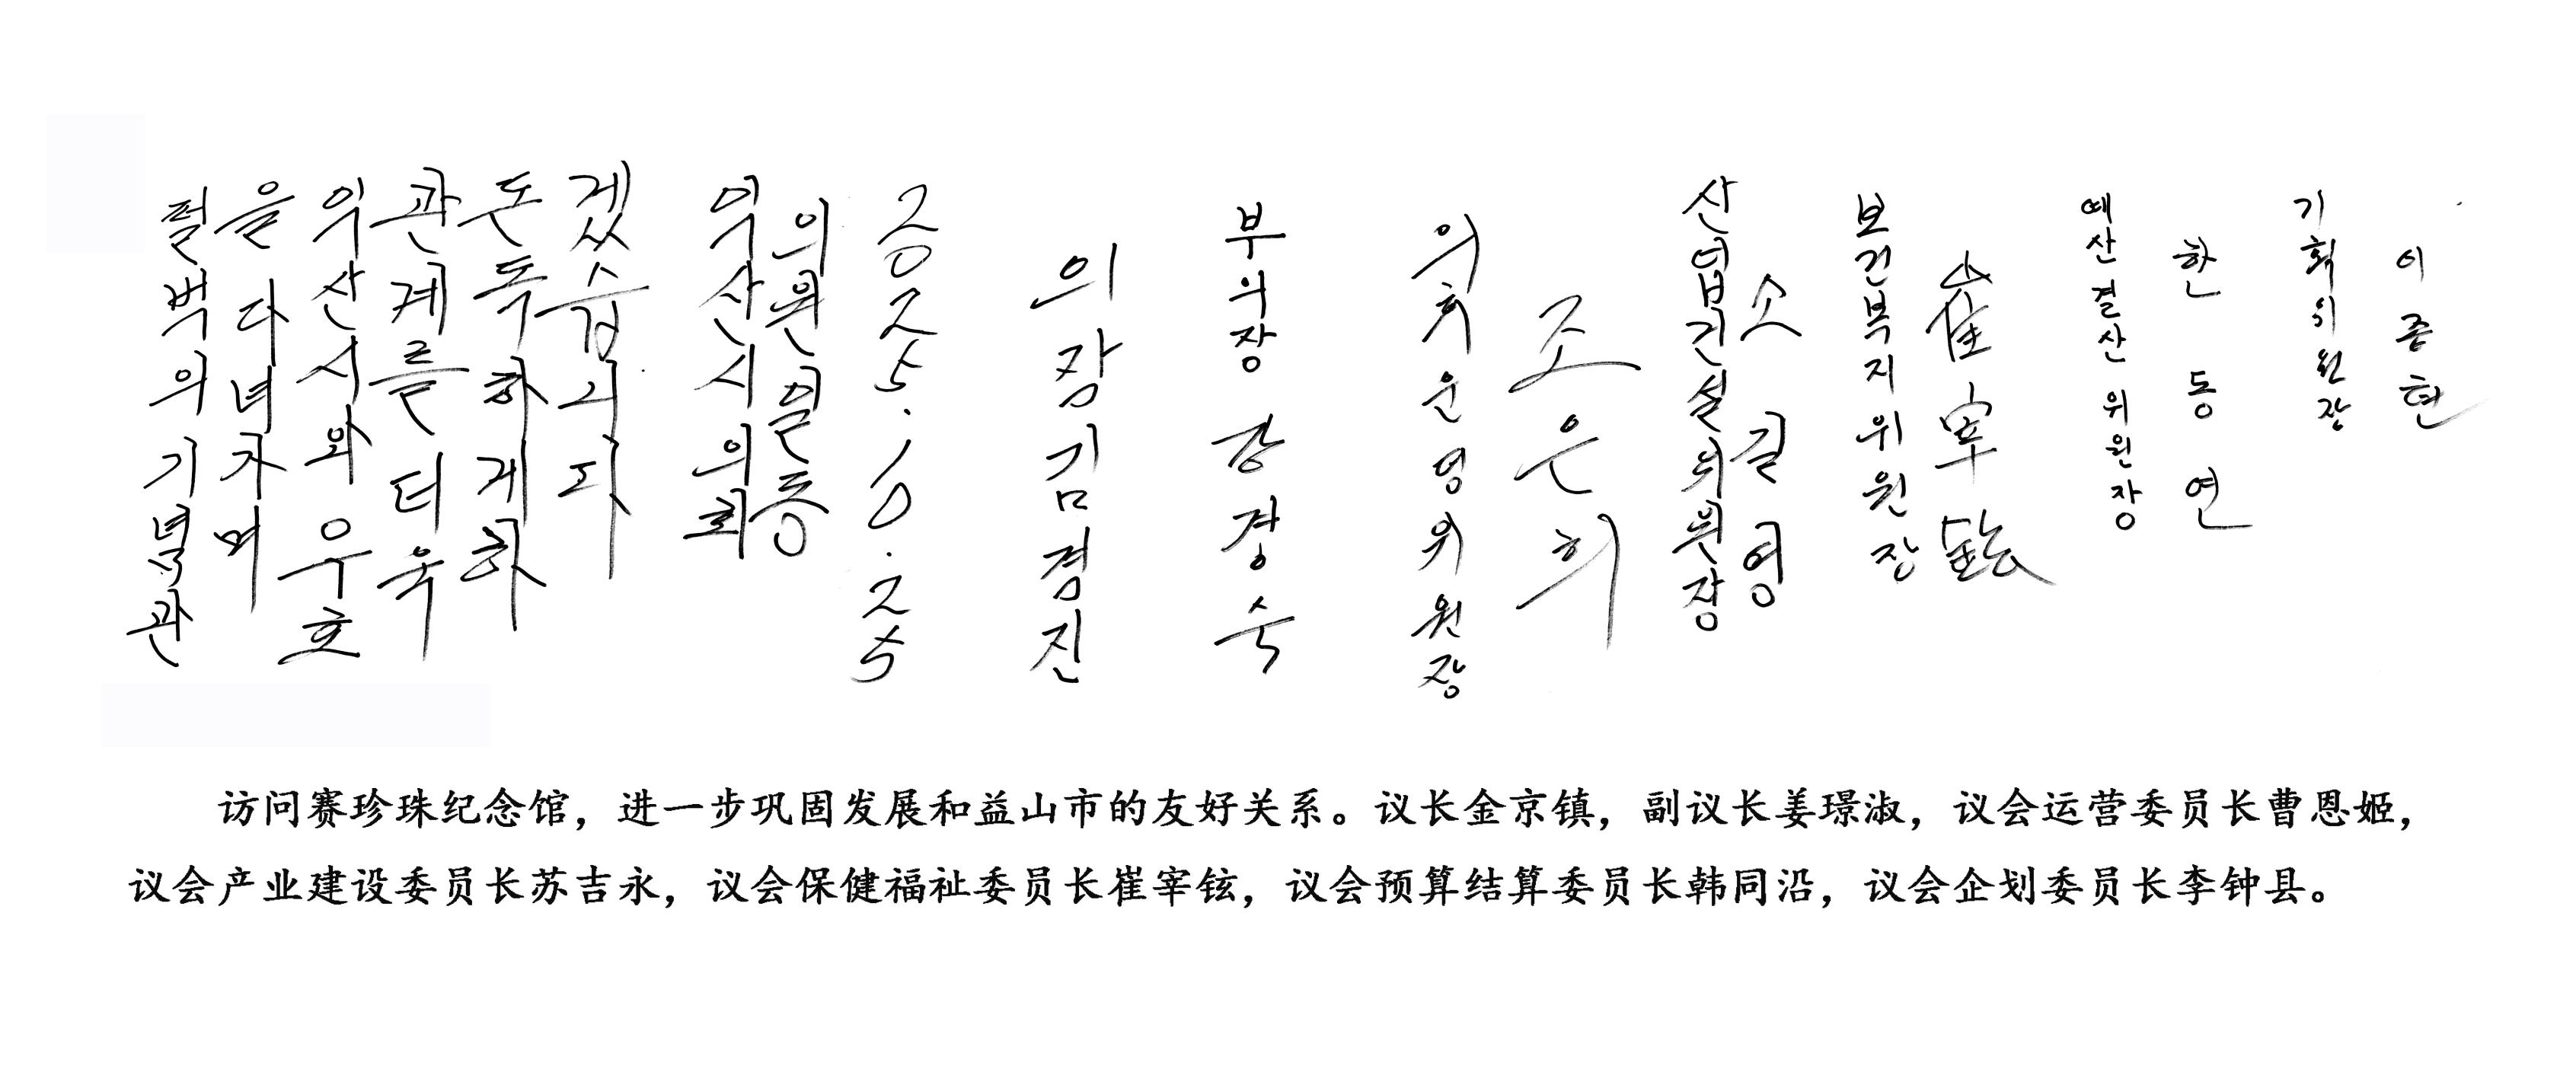 펄벅의기념관
을다녀가며
익산시와우호
관계를더욱
돈독하게하
겠습니다
익산시의회
의원일동
2025.10.25
의장김경진
부의장 강경숙
의회운영위원장
조은희
산업건설위원장
소길영
보건복지위원장
崔宰鉉
예산결산위원장
한동연
기획위원장
이종현
访问赛珍珠纪念馆，进一步巩固发展和益山市的友好关系。议长金京镇，副议长姜璟淑，议会运营委员长曹恩姬，
议会产业建设委员长苏吉永，议会保健福祉委员长崔宰铉，议会预算结算委员长韩同沿，议会企划委员长李钟县。